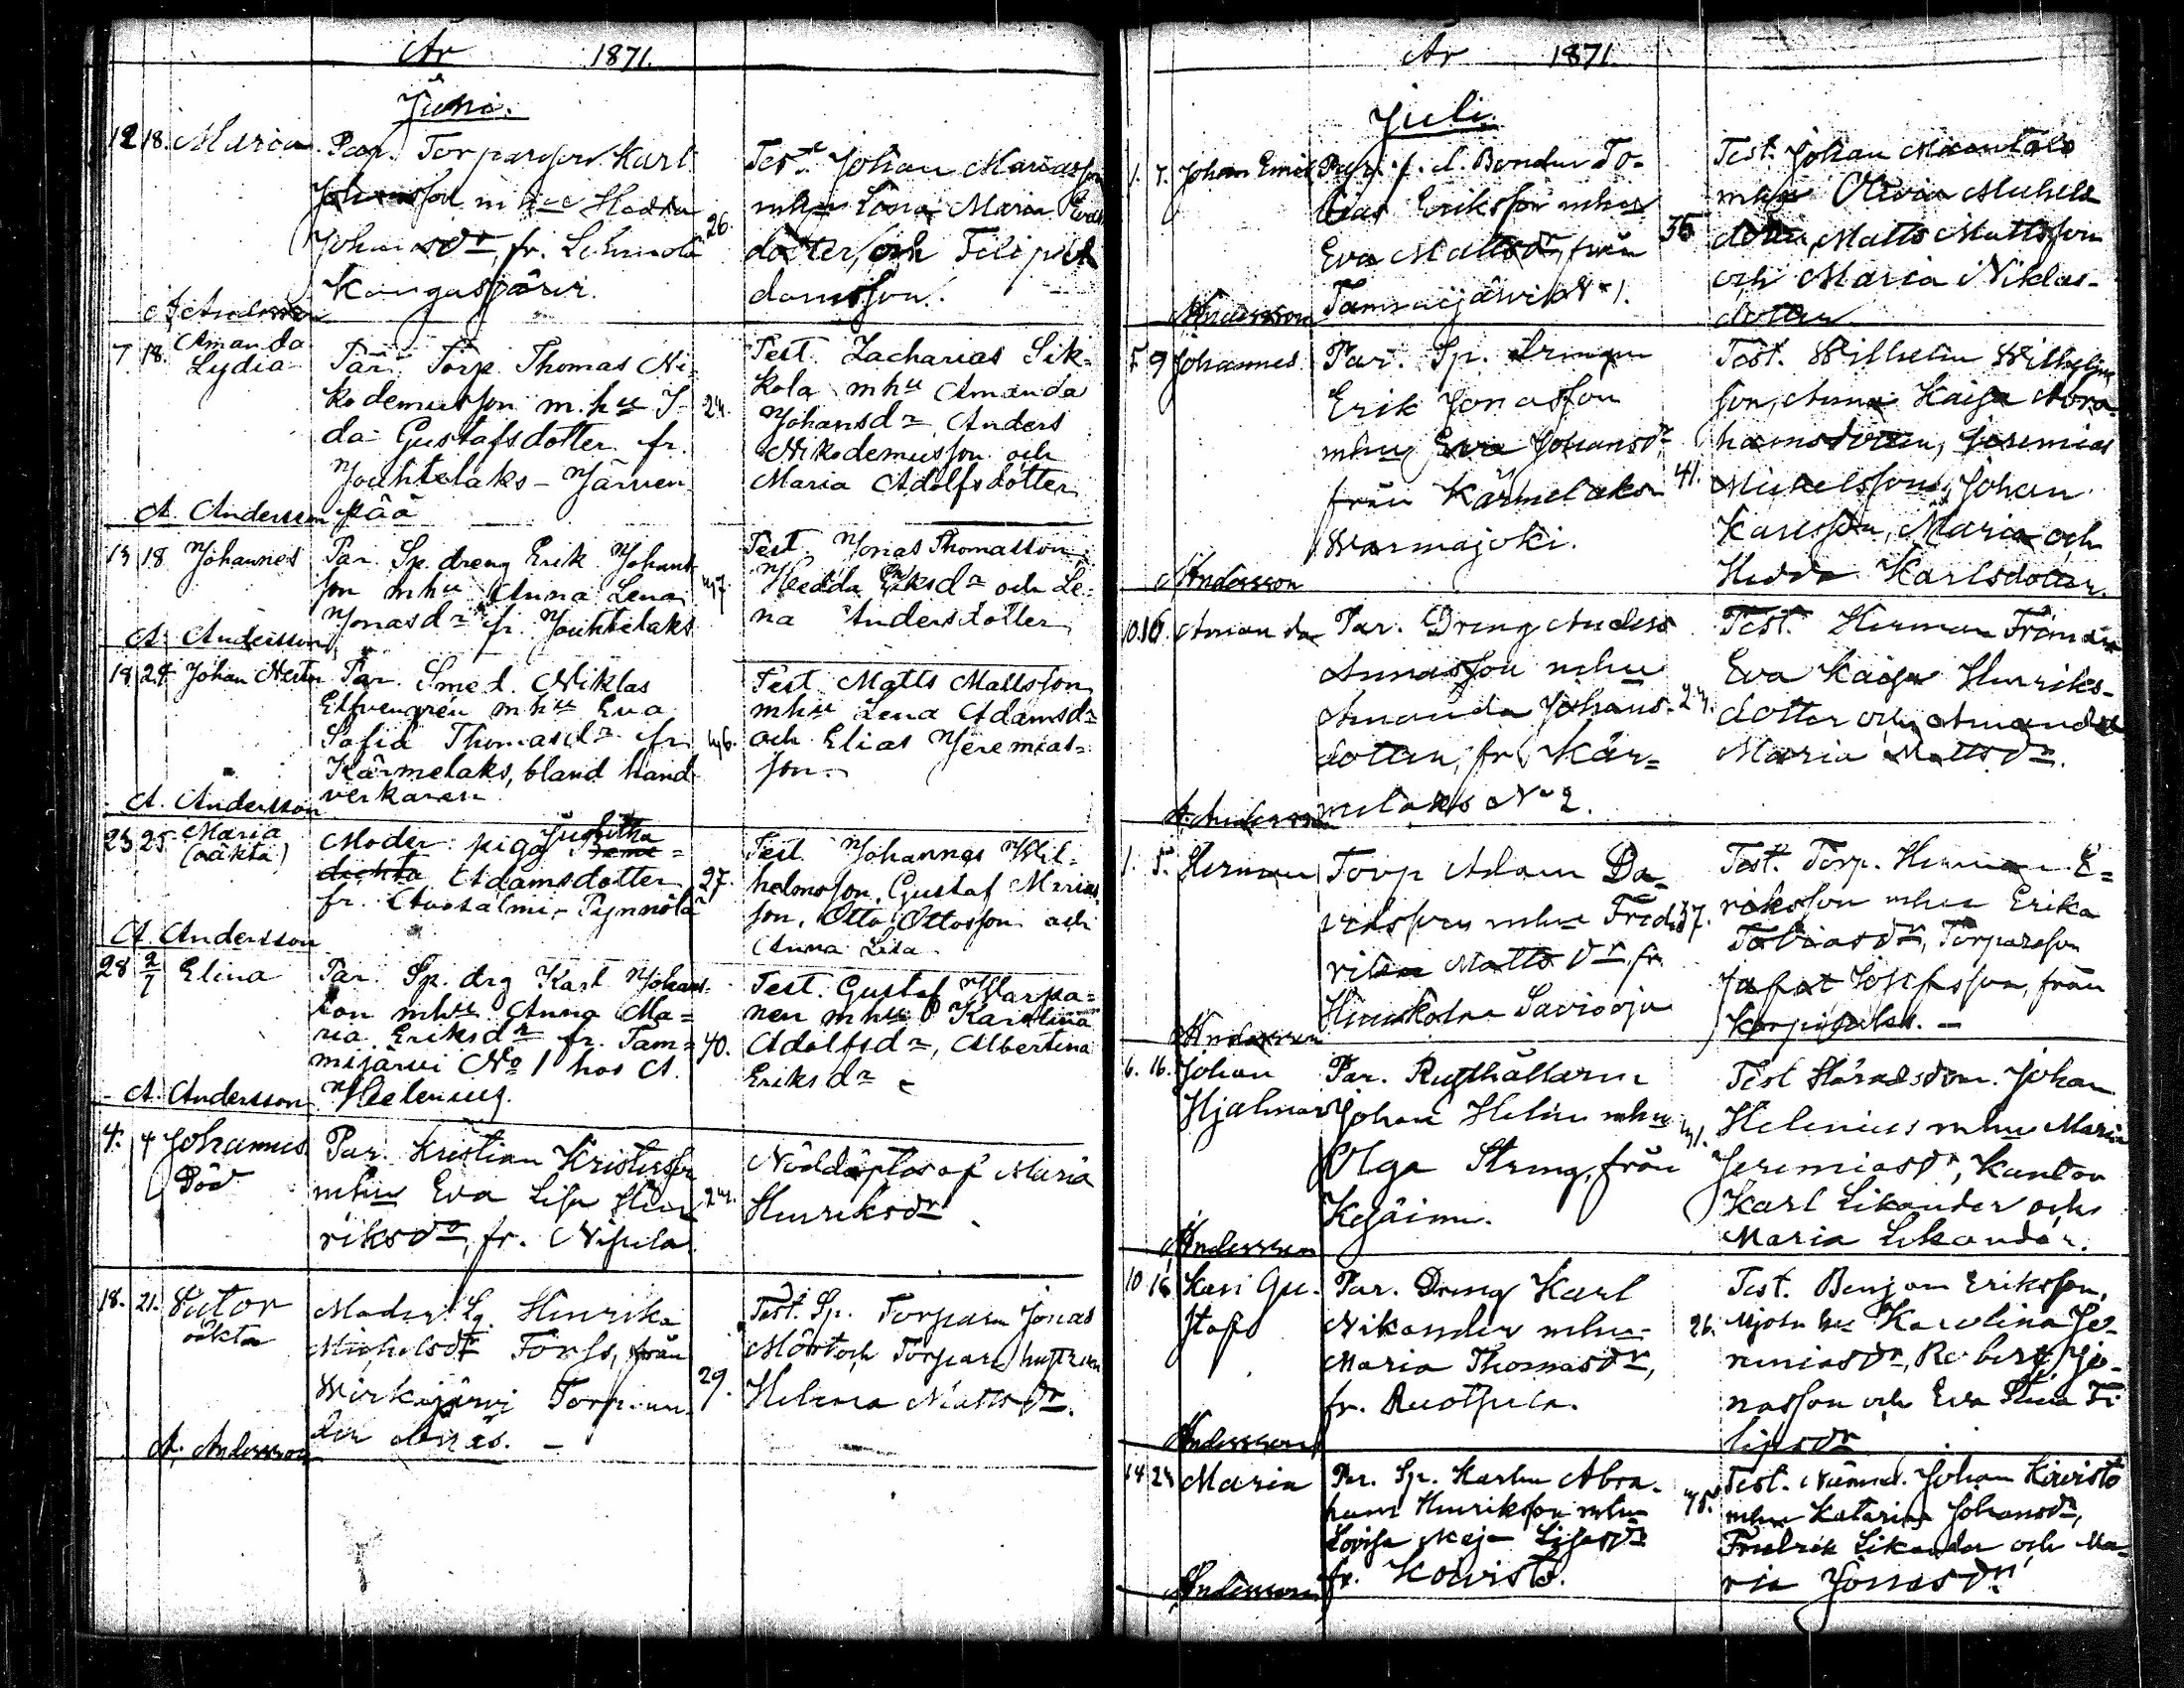 År 1871.
Juni.
12 18. Maria Par. Torparson Karl
Johansson mhue Hedda
Johansdr, fr. Lehmola
Kangasjärvi.
26.
Test. Johan Mariasson
mhue Lena Maria Evas
dotter, och Filip A
damsson.
A. Andersson
7. 18. Amanda
Lydia
Par. Torp. Thomas Ni=
kodemusson m.hu I=
da Gustafsdotter fr.
Jouhtelaks - Järven
pää
24.
Test. Zacharias Sik=
kola mhu Amanda
Johansdr Anders
Nikodemusson och
Maria Adolfsdotter
A. Andersson
13 18 Johannes Par. Sp. dreng Erik Johans
son mhu Anna Lena
Jonasdr fr. Jouhtelaks
47
Test. Jonas Thomasson
Hedda Eriksdr och Le=
na Andersdotter
A. Andersson
18 24 Johan Nestor Par. Smed. Niklas
Elfvengren mhu Eva
Sofia Thomasdr fr.
Kärmelaks, bland hand
verkaren
46.
Test. Matts Mattsson
mhu Lena Adamsdr
och Elias Jeremias=
son.
A. Andersson
23 25 Maria
(oäkta)
Moder: piga Juditha
Adamsdotter
fr. Avosalmi - Pynnölä
27.
Test. Johannes Wil=
helmsson, Gustaf Marias
son, Otto Ottosson och
Anna Lisa
A. Andersson
28 2/7 Elina Par. Sp. drg Karl Johans=
son mhu Anna Ma=
ria Eriksdr fr. Tam=
mijärvi No 1 hos A.
Helenius.
40.
Test. Gustaf Warpa=
nen mhu Karolina
Adolfsdr, Albertina
Eriksdr
A. Andersson
4. 4 Johannes
Död
Par. Kristian Kristersson
mhu Eva Lisa Hen
riksdr, fr. Nisula
24.
Nöddöptes af Maria
Henriksdr
18. 21. Viktor
oäkta
Moder Lg. Henrika
Michelsdr Forss, från
Wirkajärvi Torp un
der
29.
Test. Sp. Torparen Jonas
Mört och Torpare hustrun
Helena Mattsdr.
A. Andersson
År 1871.
Juli
1. 7. Johan Emil Par. f. d. Bonden To=
bias Eriksson mhu
Eva Mattsdr från
Tammijärvi No 1.
35
Test. Johan
mhu Olivia Michels
dotter, Matts Mattsson
och Maria Niklas-
dotter
Andersson
5 9 Johannes Par. Sp. drengen
Erik Jonasson
mhu Eva Johansdr
från Kärmelaks
Warmajoki.
41.
Test. Wilhelm Wilhelms
son, Anna Kaisa Abra
hamsdotter, Jeremias
Mickelsson, Johan
Karlsson, Maria och
Hedda Karlsdotter.
Andersson
10. 16 Amanda Par. Dreng Anders
Annasson mhu
Amanda Johans-
dotter, fr. Kär=
melaks No 2.
24.
Test. Herman Friman
Eva Kaisa Henriks-
dotter och Amanda
Maria Mattsdr.
A. Andersson
1. 5. Herman Torp Adam Da-
vidsson mhu Fred
rika Matts dr. fr.
Hinkolan Savioja
37.
Test. Torp. Herman E=
riksson mhu Erika
Tobiasdr, Torpareson
Jafet Josefsson, från
Andersson
6. 16. Johan
Hjalmar
Par. Rusthållaren
Johan Helin mhu
Olga Streng, från
41.
Test Häradsdom. Johan
Helenius mhu Maria
Jeremiasdr, Kantor
Karl Likander och
Maria Likander.
Andersson
10 16 Karl Gu-
staf
Par. Dreng Karl
Nikander mhu
Maria Thomasdr,
fr. Ruotsula.
26.
Test. Benjam Eriksson,
hu Karolina Je-
remiasdr, Robert Jo-
nasson och Eva Stina Fi
lipsdr
Andersson
14 23 Maria Par. Sp. Karlen Abra-
ham Henriksson mhu
Lovisa Maja Lisasdr
fr. Koivisto.
45.
Test. Nämnd. Johan Koivisto
mhu Katarina Johansdr,
Fredrik Likander och Ma=
ria Jonasdr
Andersson